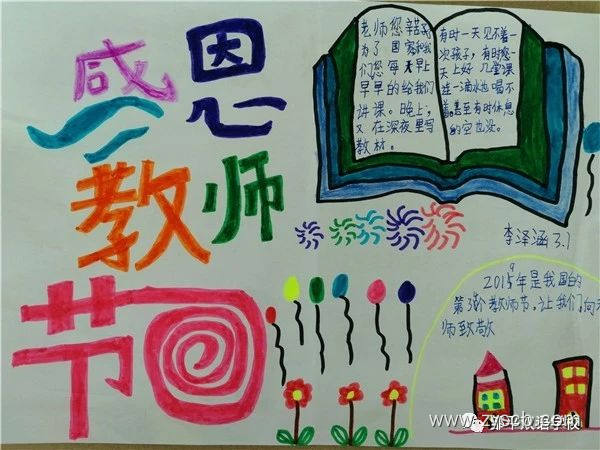 感恩
教师
节
老师您辛苦了
为了国家和我
们您每天早上
早早的给我们
讲课。晚上,
又在深夜里写
教材。
有时一天见不着一
次孩子,有时您一
天上好几堂课
连一滴水也喝不
着。甚至有时休息
的空也没。
李泽涵 3.1
2015年是我国的
第31个教师节。让我们向老
师致敬
www.zyscb.com